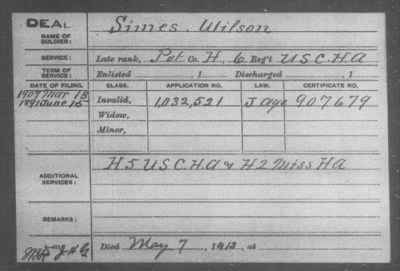 DEAL
NAME OF SOLDIER: Simes, Wilson
SERVICE: Late rank, Pvt Co. H, 6 Reg't U S C. H. A
TERM OF SERVICE: Enlisted , 1 Discharged , 1
DATE OF FILING. CLASS. APPLICATION NO. LAW. CERTIFICATE NO.
1907 Mar 13
1891 June 15 Invalid, 1,032,521 J age 907679
Widow,
Minor,
ADDITIONAL SERVICES: H 5 U S C. H. A & H 2 Miss H A
REMARKS:
Died May 7, 1913, at